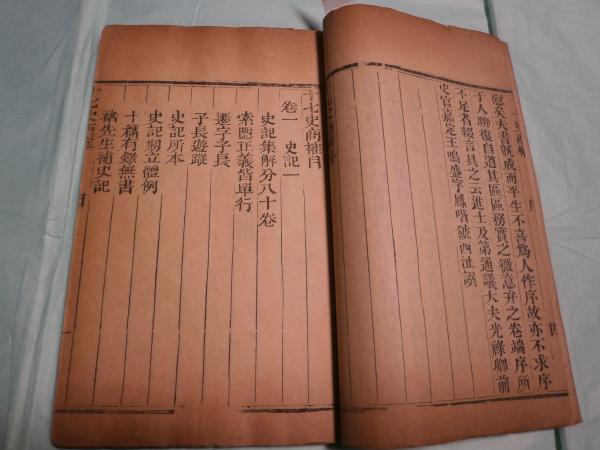 慰矣夫書旣成而平生不喜爲人作序故亦不求序
于人聊復自道其區區務實之微意弁之卷端序所
不足者綴言具之云進士及第通議大夫光祿卿前
史官嘉定王鳴盛字鳳喈號西沚譔
十七史商榷目
卷一 史記一
史記集解分八十卷
索隱正義皆單行
遷字子長
子長遊蹤
史記所本
史記刱立體例
十篇有錄無書
褚先生補史記